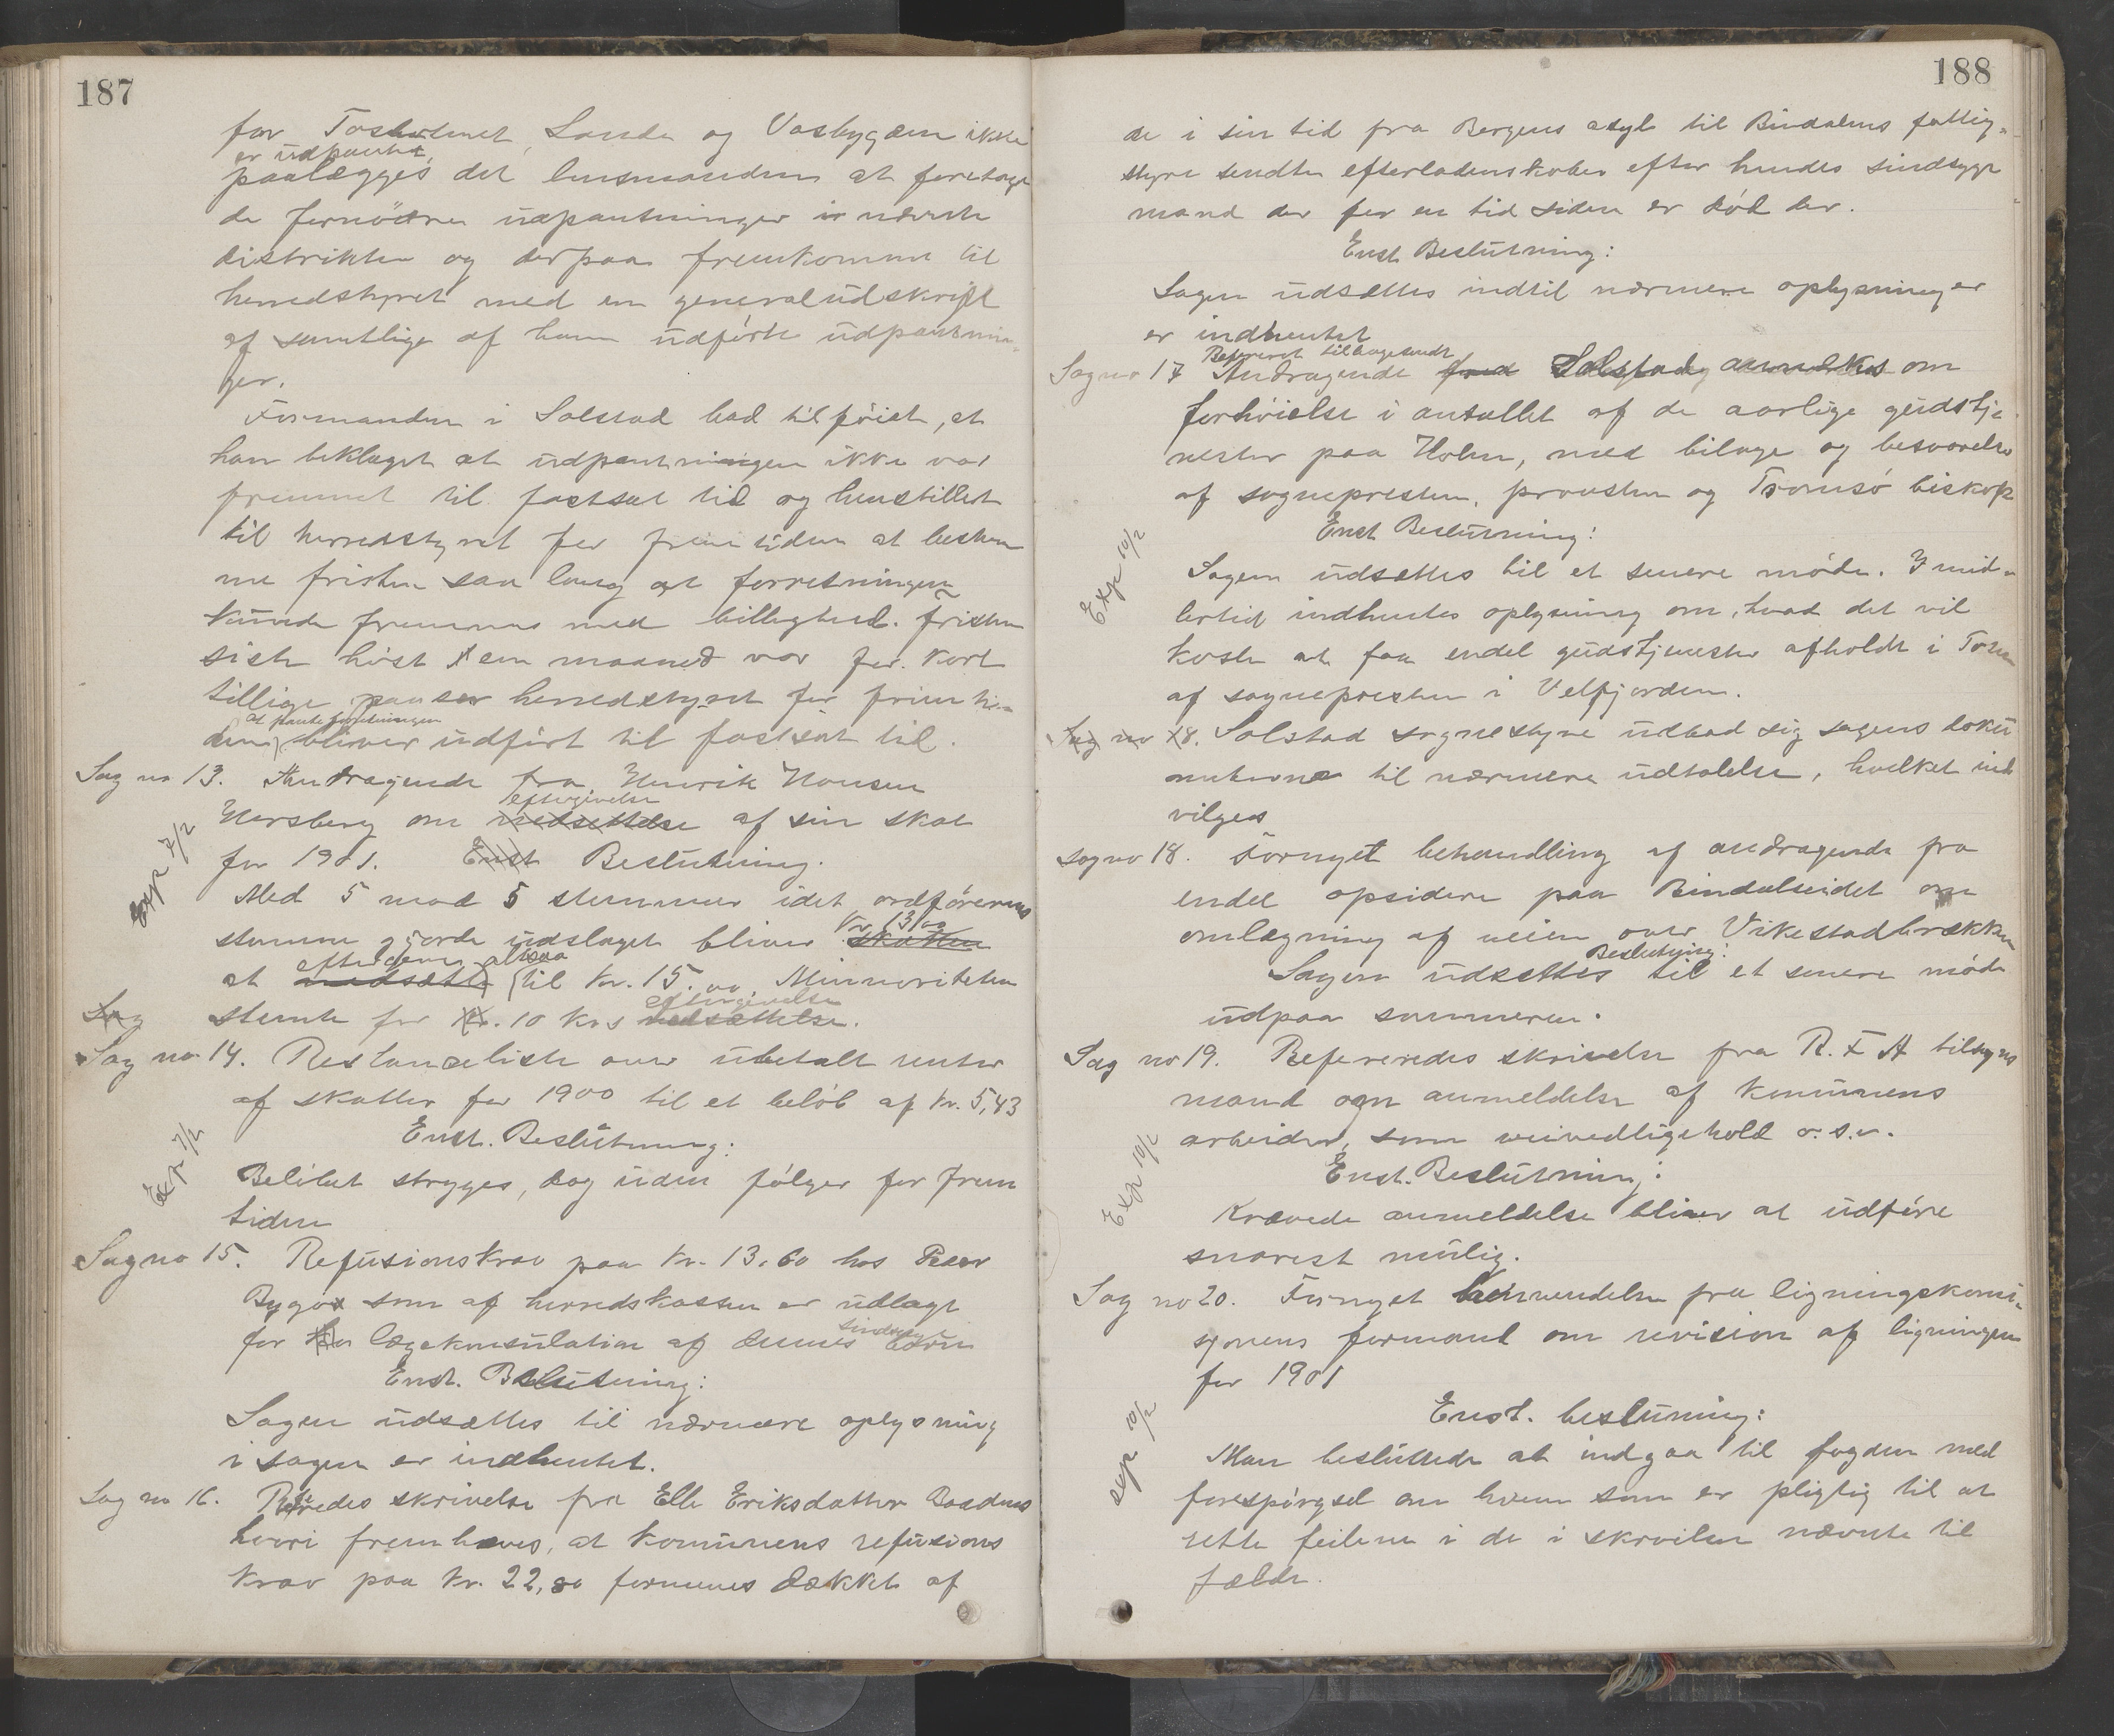 187
for Tosbotnet, Sande og Vasbygden ikke
er udpantet,
paalægges det lensmanden at foretage
de fornödne udpantninger i nævnte
distrikter og derpaa fremkomme til
herredstyret med en generaludskrift
af samtlige af ham udförte udpantnin-
ger.
Formanden i Solstad bad tilföiet, at
han beklaget at udpantningen ikke var
fremmet til fastsat tid og henstillet
til herredstyret for fremtiden at bestem
me fristen saa lang at forretningen
kunde fremmes med billighed. fristen
sisste höst 1 en maaned var for kort
tillige paaser herredstyret for fremti-
at pante forretningen
den, bliver udfört til fastsat tid.
Sag no 13. Andragende fra Henrik Hansen
eftergivelse
Hersberg om nedsettelse af sin skat
for 1901. Enst Beslutning.
Exp 7/2
Med 5 mod 5 stemmer idet ordförerens
Kr 13
stemme gjorde udslaget bliver skatten
eftergives altsaa
at nedsætte til Kr. 15.00. Minnoriteten
eftergivelse
Sag stemte for Kr. 10 Krs nedsættelse.
Sag no 14. Restanceliste over ubetalt renter
af skatter for 1900 til et belöb af Kr. 5,43
Enst. Beslutning:
Exp 7/2
Belöbet stryges, dog uden fölger for frem
tiden
Sag no 15. Refusionskrav paa Kr. 13,60 hos Peder
Bygaa som af herredskassen er udlagt
sindssyge
for lægekonsulation af dennes börn
Enst. Beslutning:
Sagen udsættes til nærmere oplysning
i sagen er indhentet.
Sag no 16. Referedes skrivelse fra Elle Eriksdatter
hvori fremhæves, at komunens refusions
krav paa Kr. 22,80 formenes dækket af
188
de i sin tid fra Bergens asyl til Bindalens fattig-
styre sendte efterladenskaber efter hendes sindsyge
mand der for en tid siden er död der.
Enst Beslutning:
Sagen udsættes indtil nærmere oplysninger
er indhentet
Refereret tilbagesendt
Sag no 17 Andragende fra Solstad om
forhöielse i antallet af de aarlige gudstje
nester paa Holm, med bilage og besvarelse
af sognepresten, provsten og Tromsö biskop
Enst Beslutning:
Exp 10/2
Sagen udsættes til et senere möde. Imid-
lertid indhentes oplysning om, hvad det vil
koste at faa endel gudstjenester afholdt i
af sognepresten i Velfjorden.
Sag no 18. Solstad sognestyre udbad sig sagens doku
menterne til nærmere udtalelse, hvilket ind
vilges
Sag no 18. Fornyet behandling af andragende fra
endel opsidere paa Bindalseidet om
omlægning af veien over Vikestadbrækken
Beslutning:
Sagen udsættes til et senere möde
udpaa sommeren.
Sag no 19. Refereredes skrivelse fra R. F A tilsyns
mand om anmeldelse af komunens
arbeider, som veivedligehold o.s.v.
Exp 10/2
Enst. Beslutning:
Krævede anmeldelse bliver at udföre
snarest mulig.
Sag no 20. Fornyet henvendelse fra ligningskomi-
sjonens formand om revision af ligningen
for 1901
Exp 10/2
Enst. beslutning:
Man besluttede at indgaa til fogden med
forespörgsel om hvem som er pligtig til at
rette feilene i de i skrivelsen nævnte til
fælde.